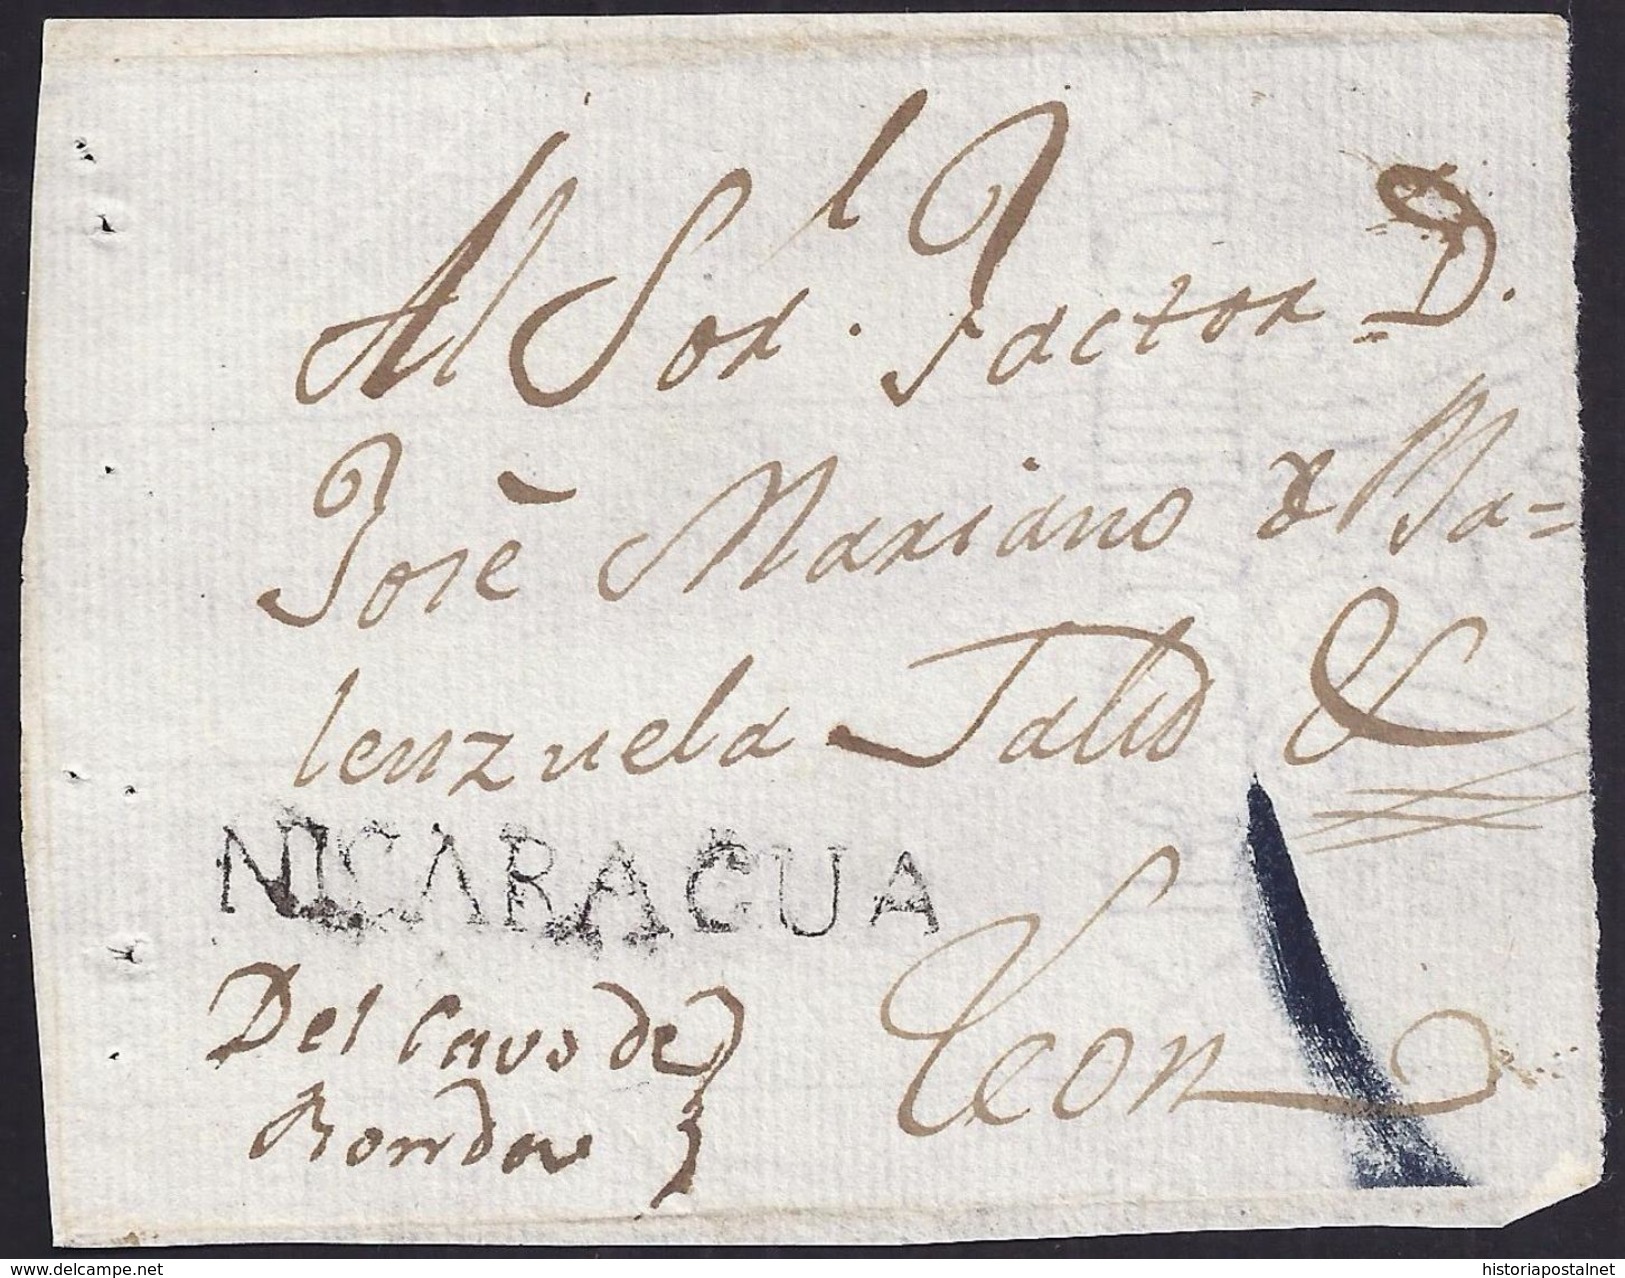 Al Sor. Factor D.
José Mariano de Va=
lenzuela Salud &
NICARAGUA
Del Cavo de
Ronda
Leon
delcampe.net
historiapostalnet